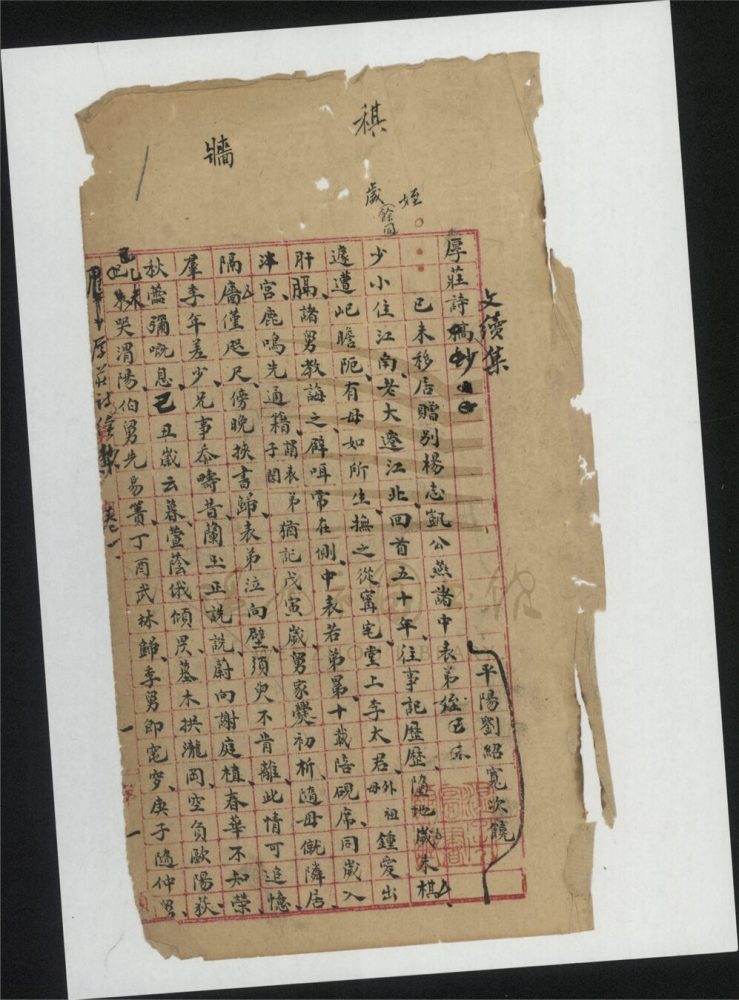 祺
牆
姪
歲
餘同
厚莊詩
文續集
平陽劉紹寬次饒
己未移居贈別楊志凱公燕諸中表弟姪己未
少小住江南老大遷江北回首五十年往事記歷歷墮地歲未棋
遽遭屺瞻阨有母如所生撫之從甯宅堂上李太君外祖母鍾愛出
肝膈諸舅教誨之辟咡常在側中表若弟晜十載陪硯席同歲入
泮宮鹿鳴先通籍謂表弟子誾猶記戊寅歲舅家爨初析隨母僦隣居
隔牆僅咫尺傍晚挾書歸表弟泣向壁須臾不肯離此情可追憶
羣季年差少兄事忝疇昔蘭玉正詵詵蔚向謝庭植春華不知榮
秋蕙彌嘅息己丑歲云暮萱蔭俄傾昃墓木拱瀧岡空負歐陽荻
己未哭渭陽伯舅先易簀丁酉武林歸季舅即窀穸庚子隨仲舅
厚莊詩續集